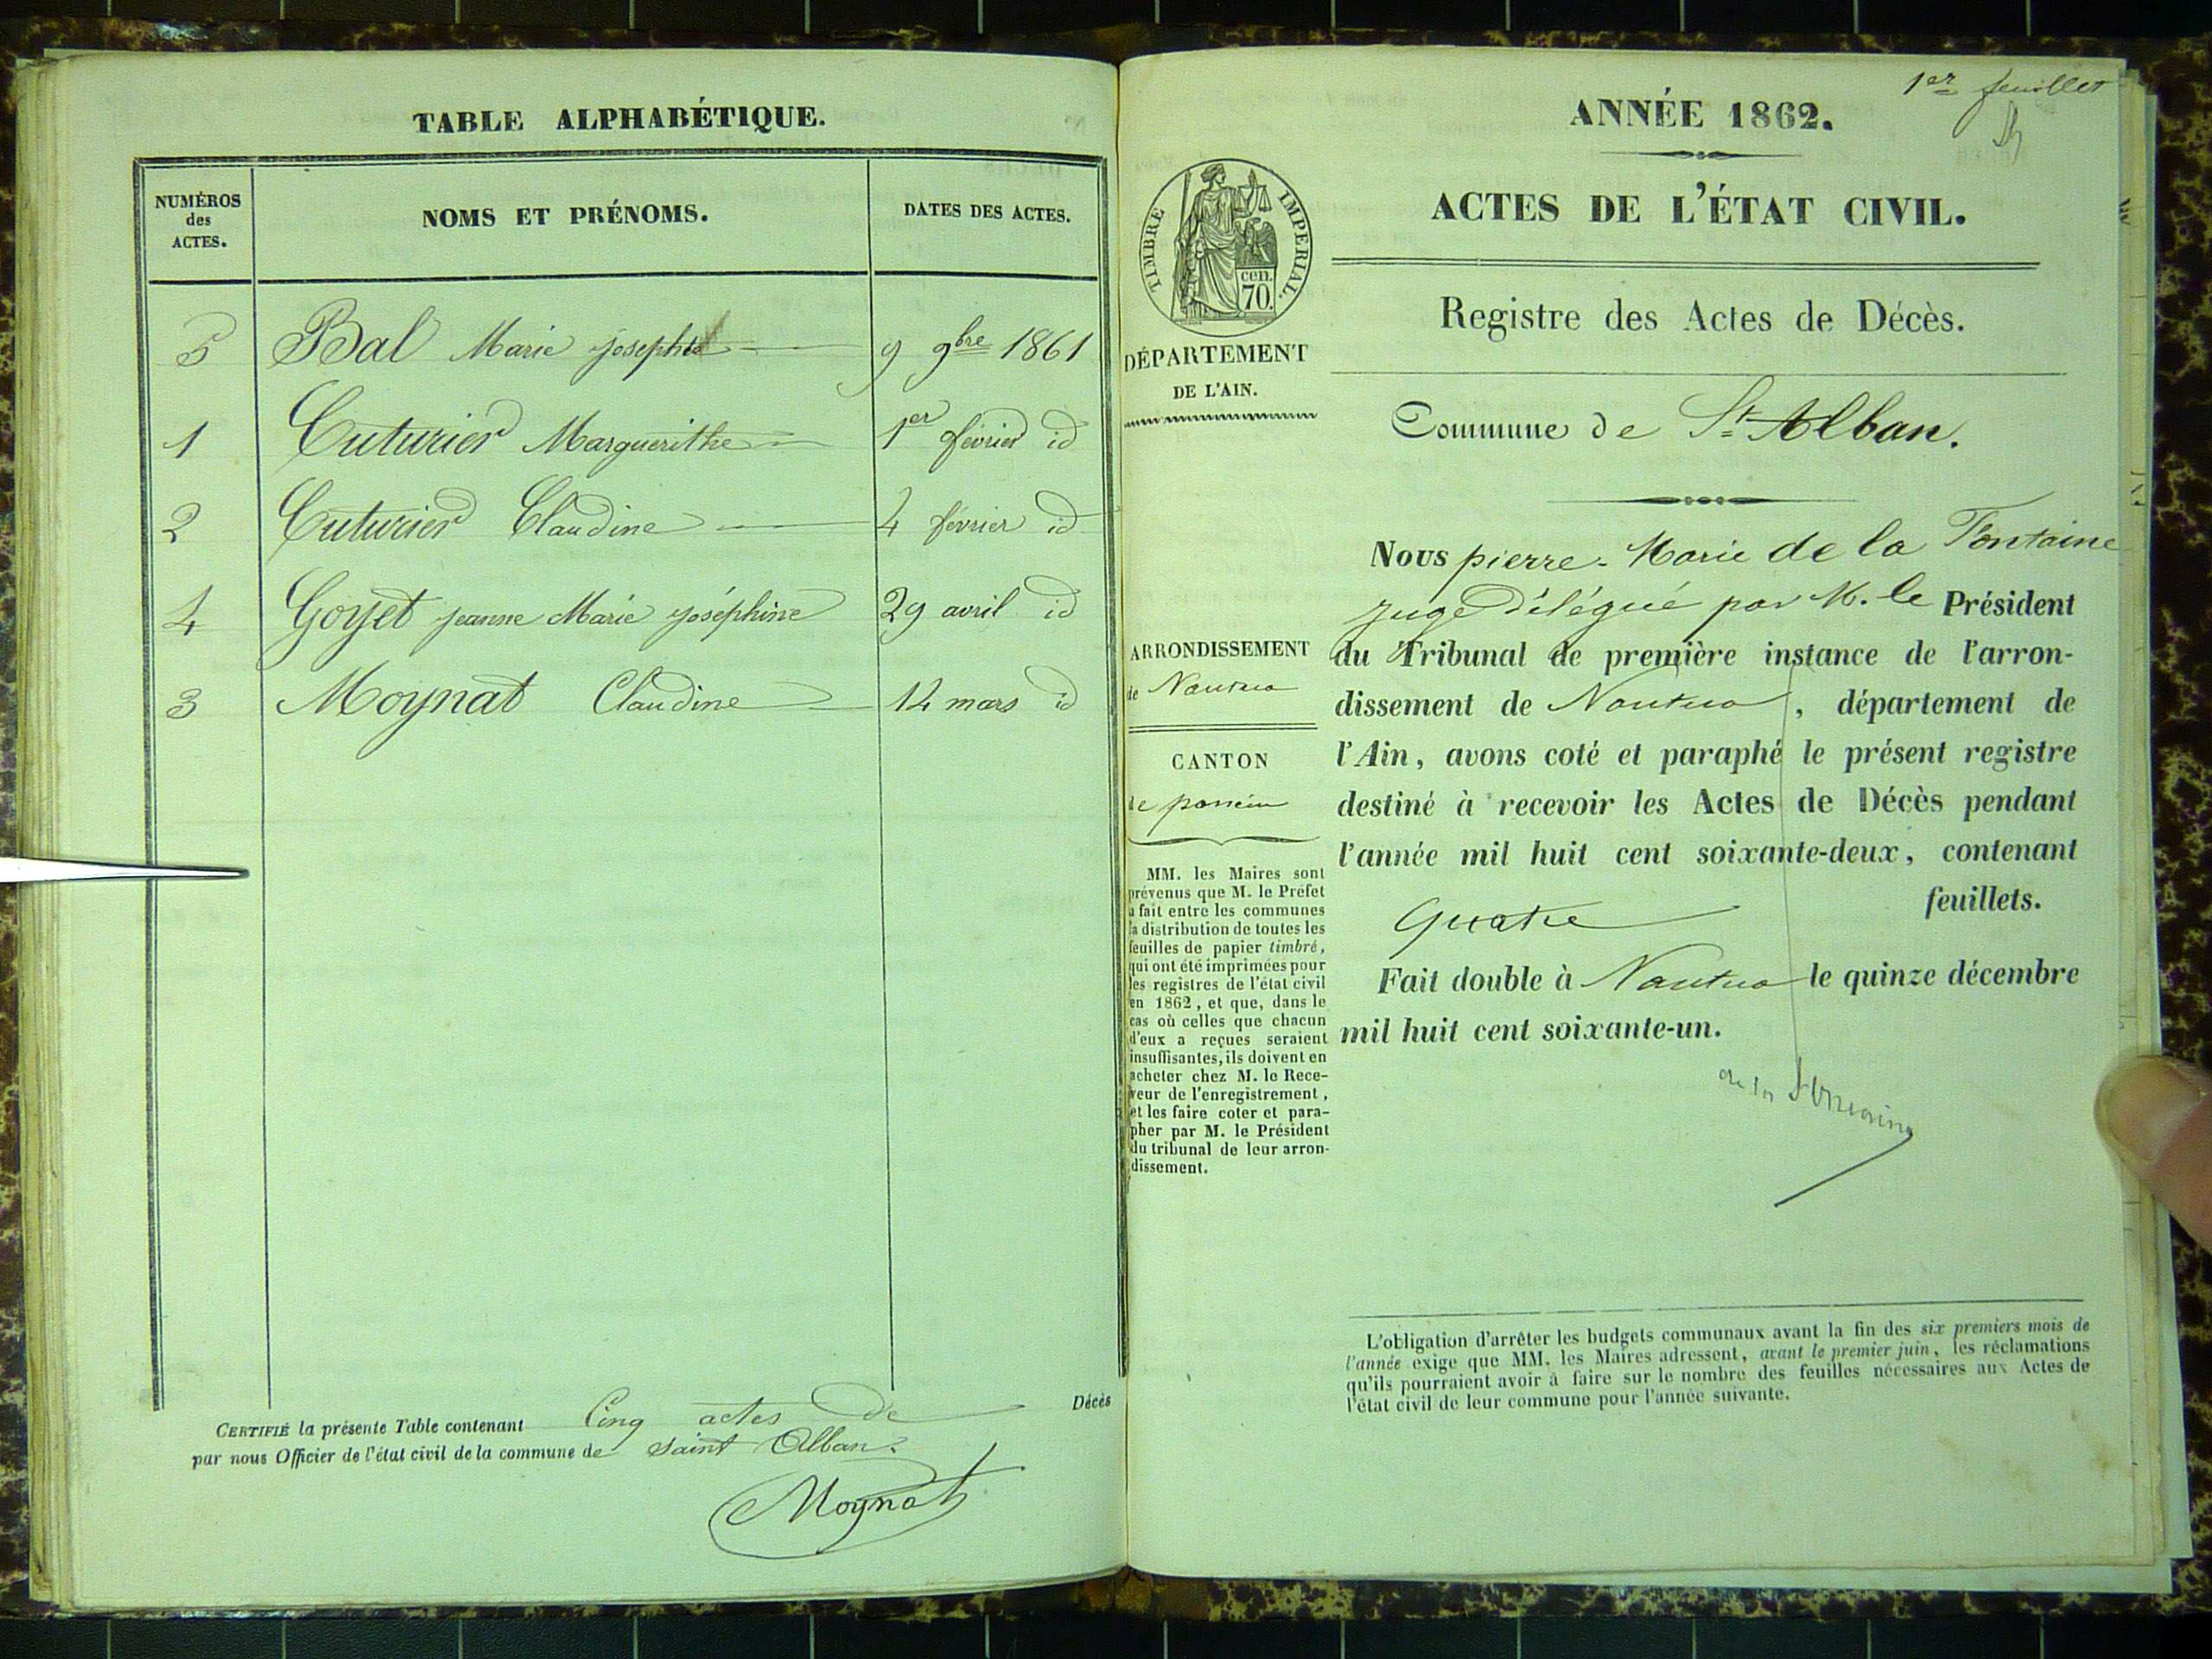 TABLE ALPHABÉTIQUE.
NUMÉROS
des
ACTES.
NOMS ET PRÉNOMS.
DATES DES ACTES.
5 Bal Marie josephte 9 9bre 1861
1 Cuturier Marguerithe 1er février id
2 Cuturier Claudine 4 février id
4 Goyet jeanne Marie joséphine 29 avril id
3 Moynat Claudine 14 mars id
CERTIFIÉ la présente Table contenant Cinq actes de Décès
par nous Officier de l'état civil de la commune de saint Alban.
Moynat
1er feuillet
ANNÉE 1862.
TIMBRE IMPERIAL.
cen.
70.
ACTES DE L'ÉTAT CIVIL.
Registre des Actes de Décès.
DÉPARTEMENT
DE L'AIN.
Commune de St. Alban.
Nous pierre-Marie de la Fontaine
juge délégué par M. le Président
du Tribunal de première instance de l'arron-
dissement de Nantua, département de
l'Ain, avons coté et paraphé le présent registre
destiné à recevoir les Actes de Décès pendant
l'année mil huit cent soixante-deux, contenant
quatre feuillets.
Fait double à Nantua le quinze décembre
mil huit cent soixante-un.
de la Fontaine
ARRONDISSEMENT
de Nantua
CANTON
de poncin
MM. les Maires sont
prévenus que M. le Préfet
a fait entre les communes
la distribution de toutes les
feuilles de papier timbré,
qui ont été imprimées pour
les registres de l'état civil
en 1862, et que, dans le
cas où celles que chacun
d'eux a reçues seraient
insuffisantes, ils doivent en
acheter chez M. le Rece-
veur de l'enregistrement,
et les faire coter et para-
pher par M. le Président
du tribunal de leur arron-
dissement.
L'obligation d'arrêter les budgets communaux avant la fin des six premiers mois de
l'année exige que MM. les Maires adressent, avant le premier juin, les réclamations
qu'ils pourraient avoir à faire sur le nombre des feuilles nécessaires aux Actes de
l'état civil de leur commune pour l'année suivante.